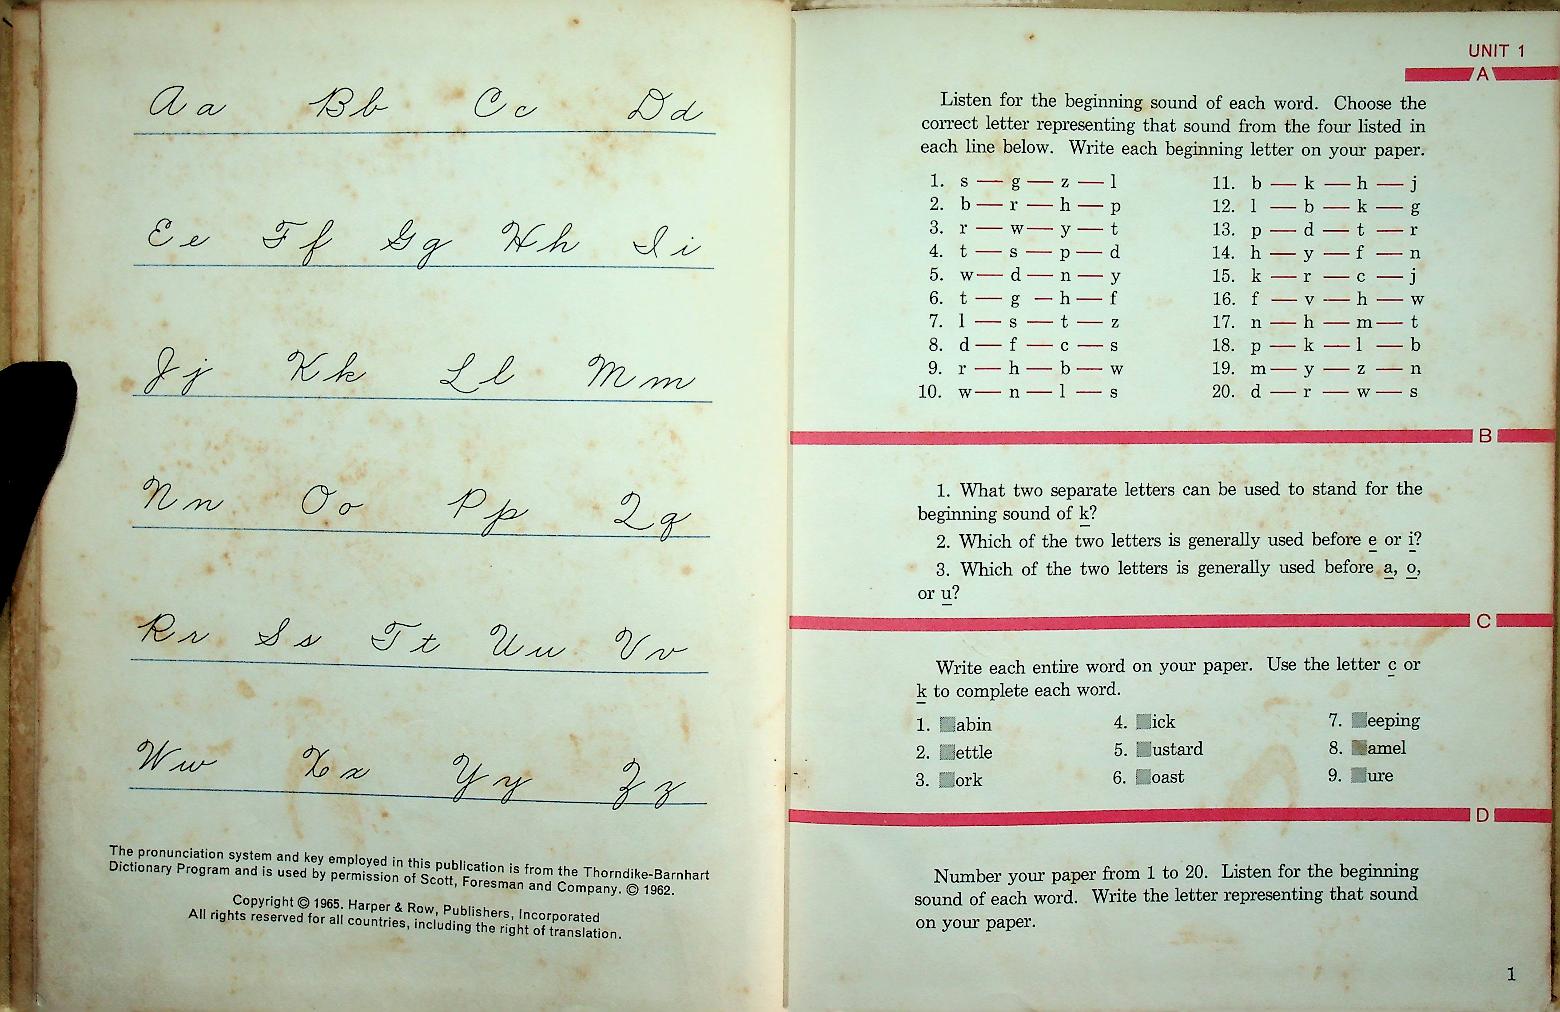 Aa Bb Cc Dd
Ee Ff Gg Hh Ii
Jj Kk Ll Mm
Nn Oo Pp Qq
Rr Ss Tt Uu Vv
Ww Xx Yy Zz
The pronunciation system and key employed in this publication is from the Thorndike-Barnhart
Dictionary Program and is used by permission of Scott, Foresman and Company. © 1962.
Copyright © 1965. Harper & Row, Publishers, Incorporated
All rights reserved for all countries, including the right of translation.
UNIT 1
A
Listen for the beginning sound of each word. Choose the
correct letter representing that sound from the four listed in
each line below. Write each beginning letter on your paper.
1. s — g — z — l
2. b — r — h — p
3. r — w — y — t
4. t — s — p — d
5. w — d — n — y
6. t — g — h — f
7. l — s — t — z
8. d — f — c — s
9. r — h — b — w
10. w — n — l — s
11. b — k — h — j
12. l — b — k — g
13. p — d — t — r
14. h — y — f — n
15. k — r — c — j
16. f — v — h — w
17. n — h — m — t
18. p — k — l — b
19. m — y — z — n
20. d — r — w — s
B
1. What two separate letters can be used to stand for the
beginning sound of k?
2. Which of the two letters is generally used before e or i?
3. Which of the two letters is generally used before a, o,
or u?
C
Write each entire word on your paper. Use the letter c or
k to complete each word.
1. abin
2. ettle
3. ork
4. ick
5. ustard
6. oast
7. eeping
8. amel
9. ure
D
Number your paper from 1 to 20. Listen for the beginning
sound of each word. Write the letter representing that sound
on your paper.
1